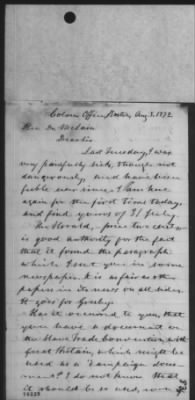 Coloni. Office, Boston, Aug. 3, 1872
Rev. Dr. McLain
Dear Sir
Last Tuesday, I was
very painfully sick, though not
dangerously, and have been
feeble ever since. I am here
again for the first time today.
and find yours of 31 July.
The Herald, you see
is good authority for the fact
that it found the paragraph
which I sent you in some
newspaper. It is as fair as other
papers in its news on all sides.
It goes for Greeley.
Has it occurred to you, that
you have a document on
the Slave Trade Convention with
Great Britain, which might be
used as a "campaign docu-
ment"? I do not know that
it should be so used, even
14225